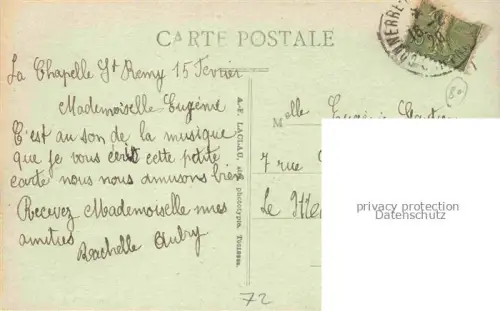 CARTE POSTALE
La Chapelle St Remy 15 Fevrier
Mademoiselle Eugénie
C'est au son de la musique
que je vous écrit cette petite
carte nous nous amusons bien
Recevez Mademoiselle mes
amitiés
Rachelle Aubry
A.-F. LACLAU, phototypeur, Toulouse.
Melle Eugénie
7 rue
Le
privacy protection
Datenschutz
80
72